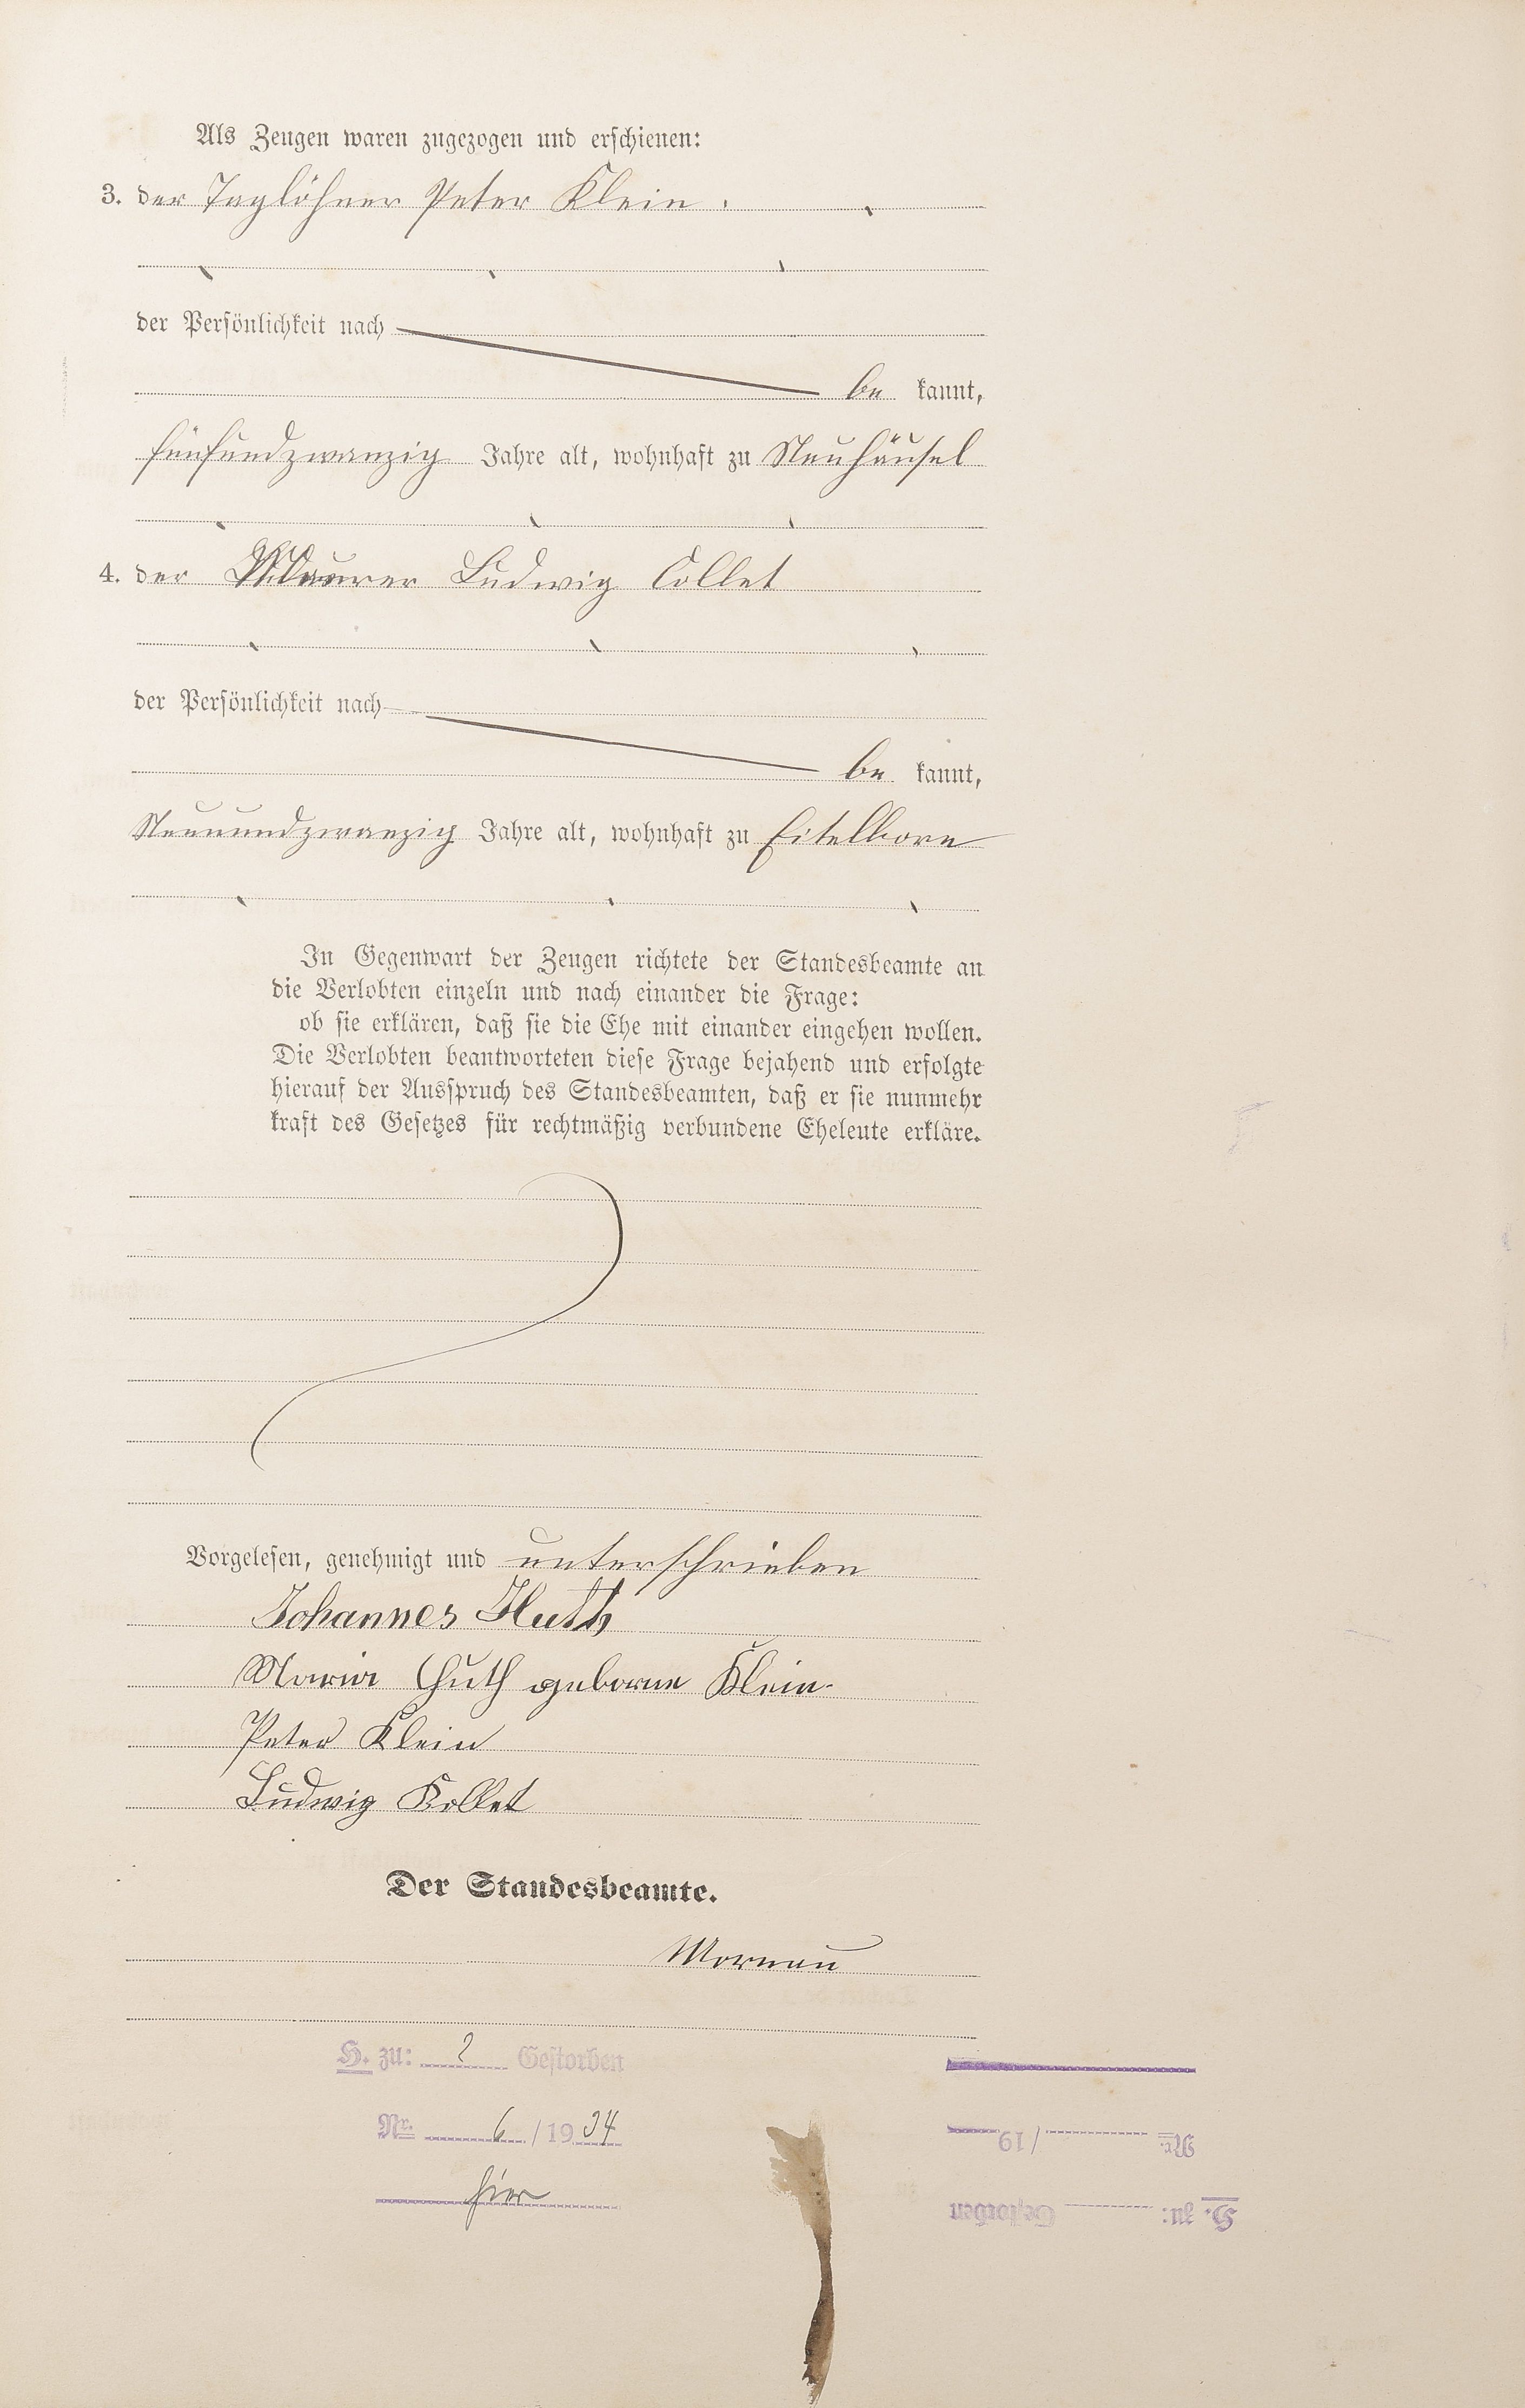 Als Zeugen waren zugezogen und erschienen:
3. der Taglöhner Peter Klein.
der Persönlichkeit nach
be kannt,
fünfundzwanzig Jahre alt, wohnhaft zu Neuhäusel
4. der Maurer Ludwig Collet
der Persönlichkeit nach
be kannt,
Neunundzwanzig Jahre alt, wohnhaft zu Eitelborn
In Gegenwart der Zeugen richtete der Standesbeamte an
die Verlobten einzeln und nach einander die Frage:
ob sie erklären, daß sie die Ehe mit einander eingehen wollen.
Die Verlobten beantworteten diese Frage bejahend und erfolgte
hierauf der Ausspruch des Standesbeamten, daß er sie nunmehr
kraft des Gesetzes für rechtmäßig verbundene Eheleute erkläre.
Vorgelesen, genehmigt und unterschrieben
Johannes Huth
Maria Huth geborne Klein.
Peter Klein
Ludwig Kollet
Der Standesbeamte.
Mornau
H. zu: 2 Gestorben
Nr. 6 / 19 34
hier
H. zu: Gestorben
Nr. / 19